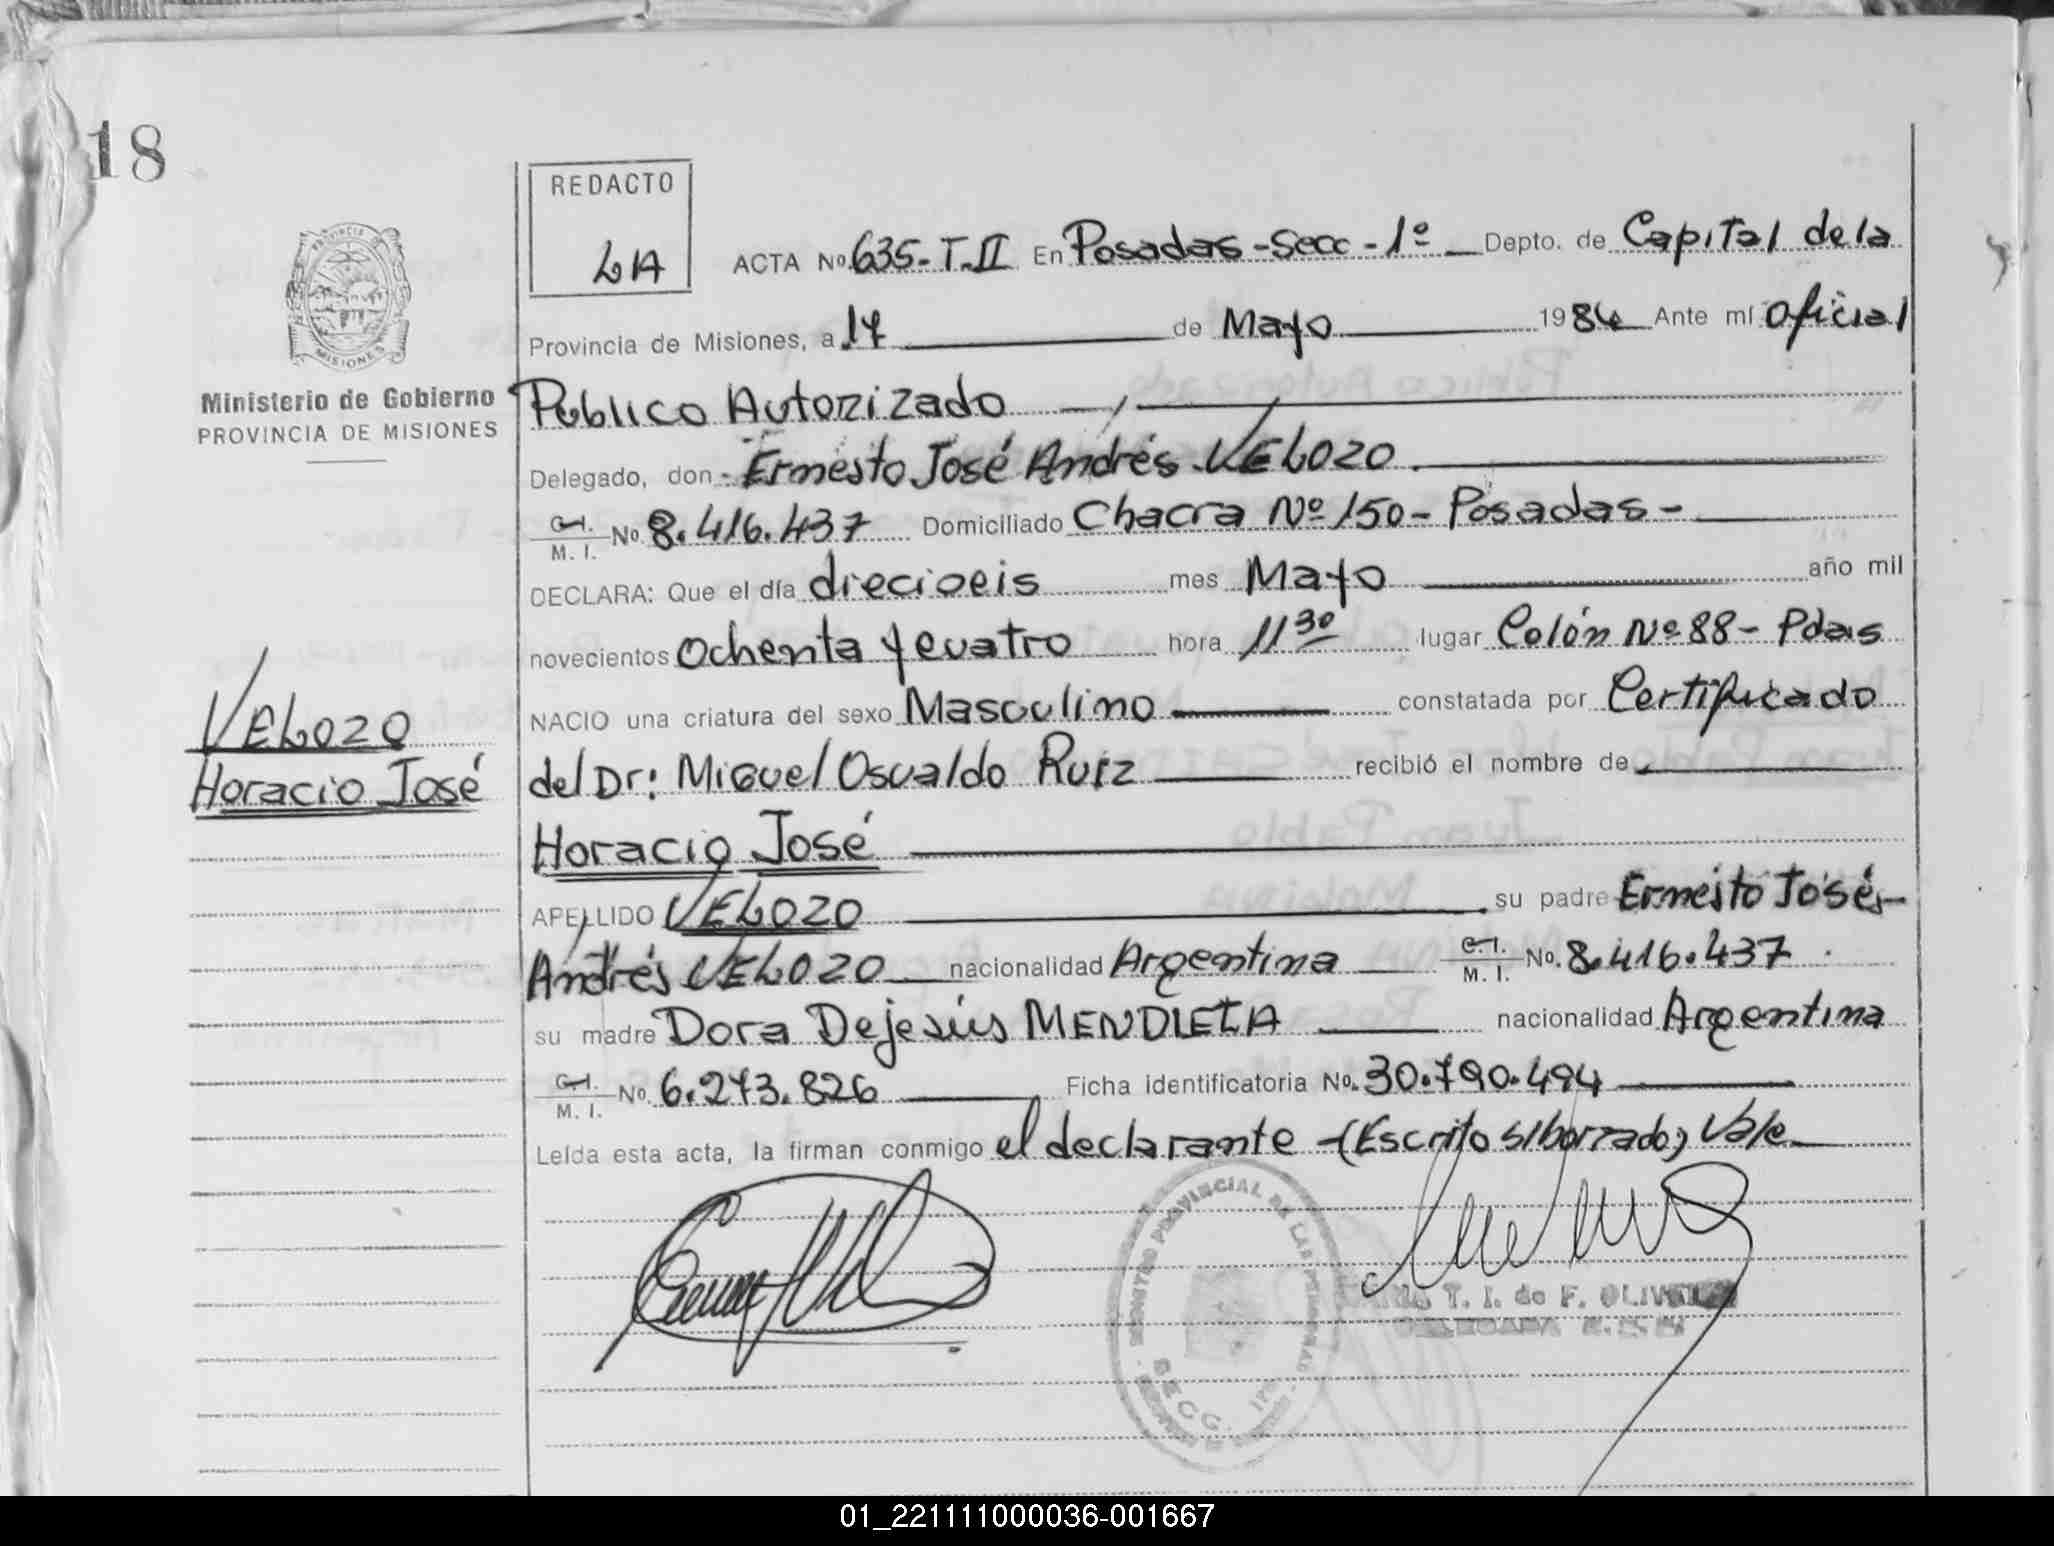 18
REDACTO
LA
ACTA No. 635-T.II En Posadas-Secc-1º Depto. de Capital de la
Provincia de Misiones, a 17 de Mayo 1984 Ante mí Oficial
Ministerio de Gobierno
PROVINCIA DE MISIONES
Público Autorizado
Delegado, don Ernesto José Andrés VELOZO
C.I. M. I. No. 8.416.437 Domiciliado Chacra Nº 150- Posadas-
DECLARA: Que el día diecioeis mes Mayo año mil
novecientos Ochenta y cuatro hora 11 30 lugar Colón Nº 88- Pdas
NACIO una criatura del sexo Masculino constatada por Certificado
VELOZO
Horacio José
del Dr: Miguel Osvaldo Ruiz recibió el nombre de
Horacio José
APELLIDO VELOZO su padre Ernesto José
Andrés VELOZO nacionalidad Argentina C.I. M. I. No. 8.416.437.
su madre Dora Dejesús MENDIETA nacionalidad Argentina
C.I. M. I. No. 6.273.826 Ficha identificatoria No. 30.790.494
Leída esta acta, la firman conmigo el declarante -(Escrito s/borrado) Vale
REGISTRO PROVINCIAL DE LAS PERSONAS
SECC. 1ra
T. I. de F. OLIVEIRA
DELEGADA
01_221111000036-001667